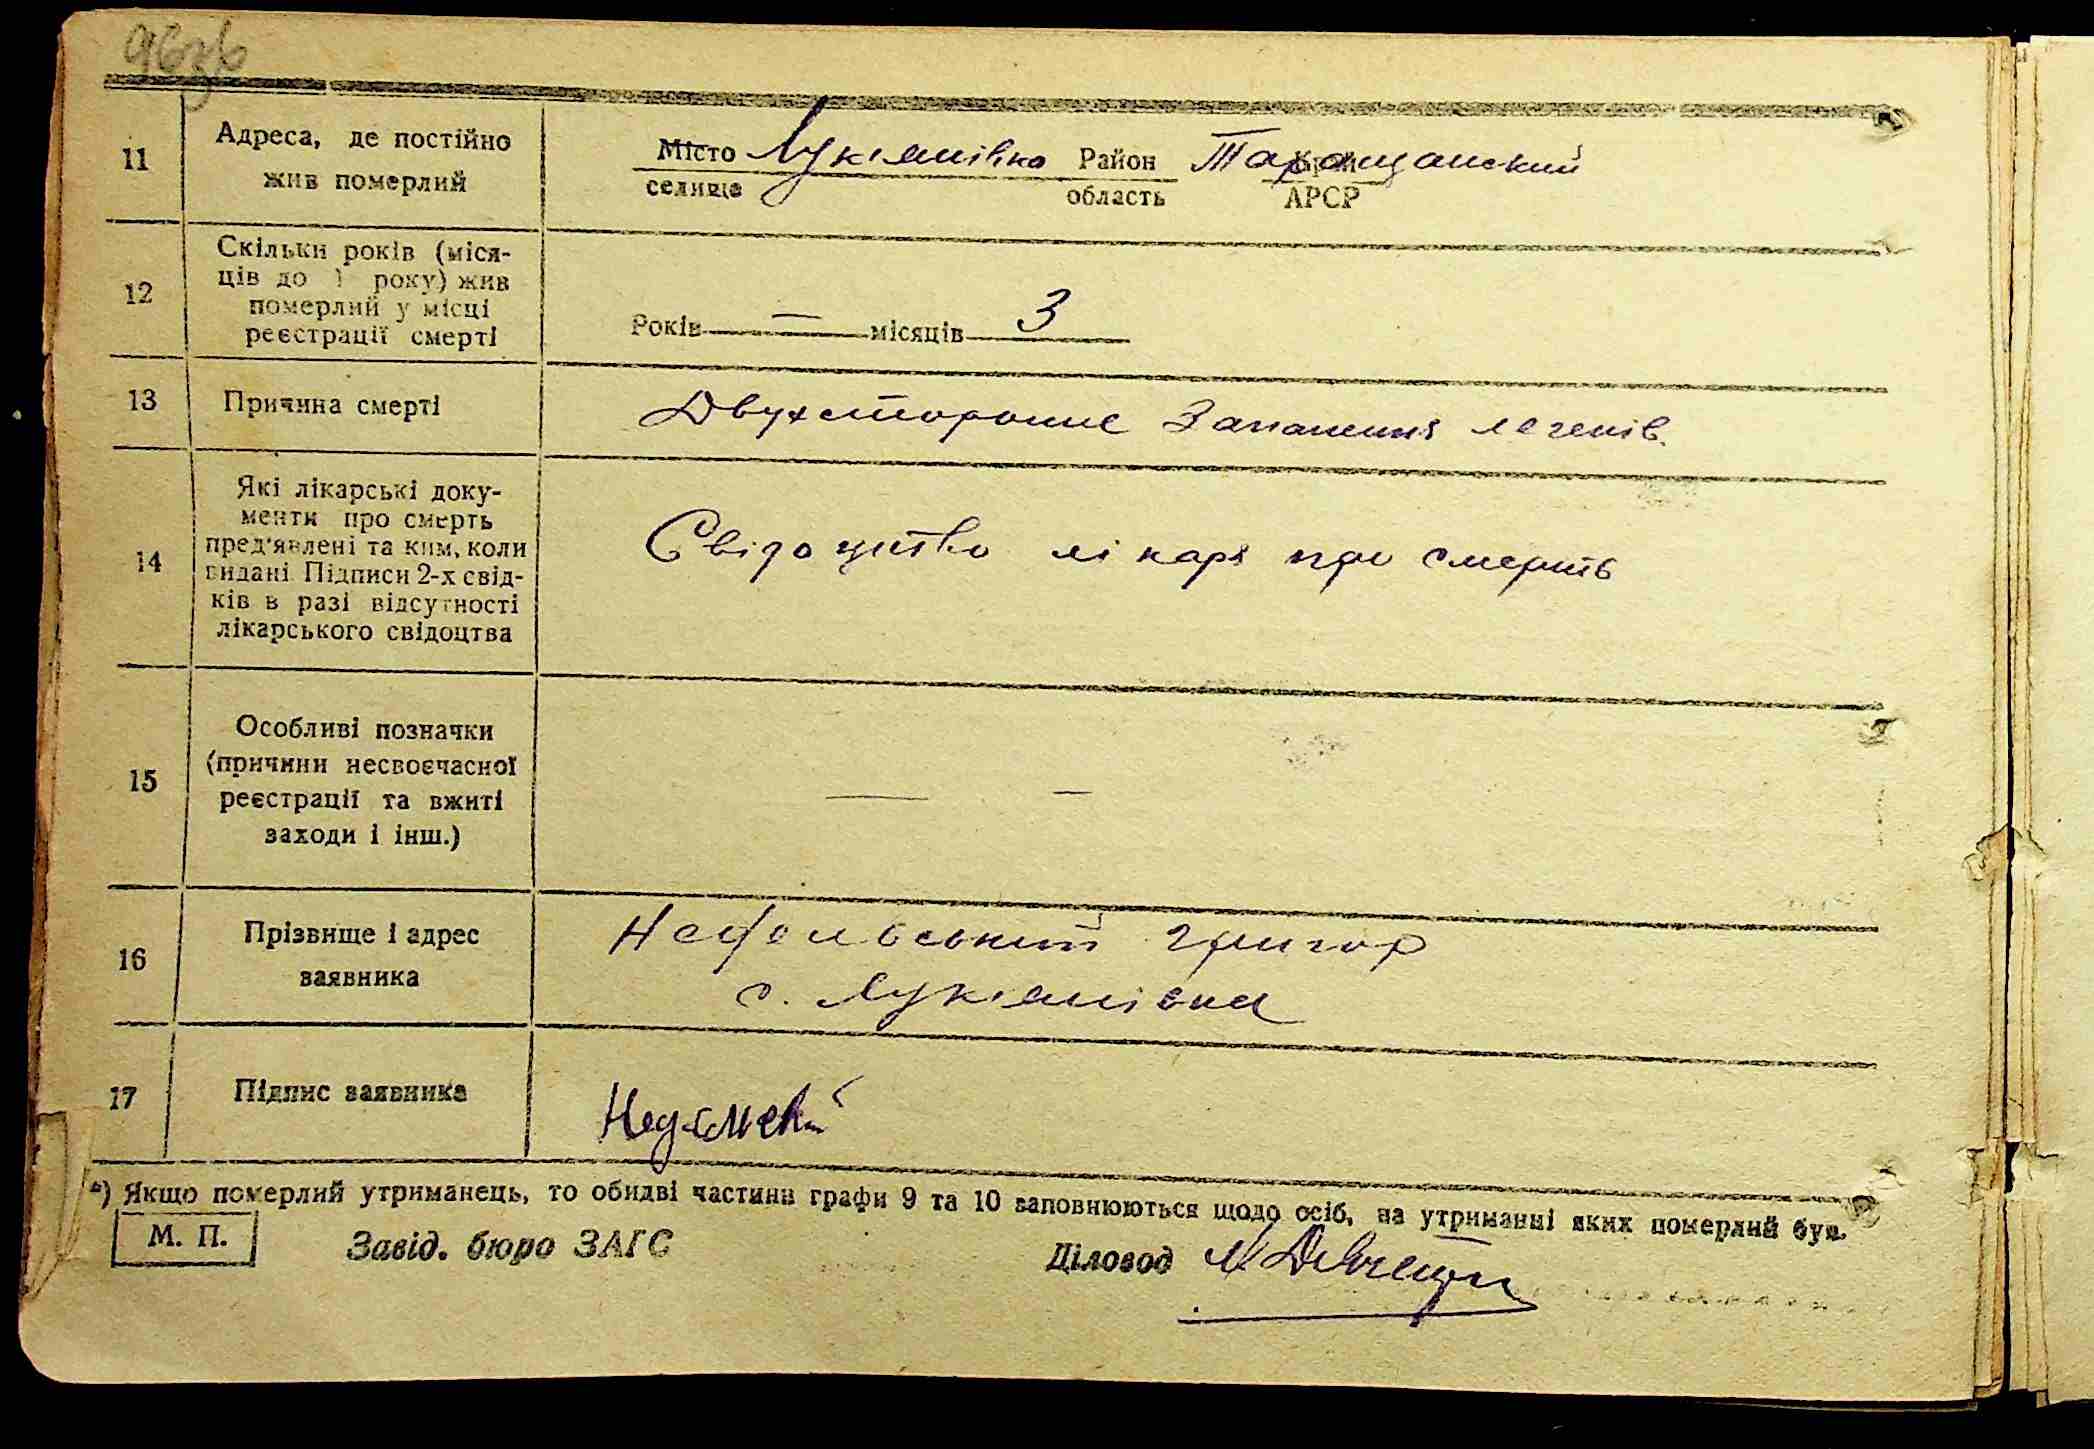 11
Адреса, де постійно
жив померлий
Місто Лукянівка Район Таращанский
селище область АРСР
12
Скільки років (міся-
ців до 1 року) жив
померлий у місці
реєстрації смерті
Років — місяців 3
13
Причина смерті
Двухстороннє Запалення легенів.
14
Які лікарські доку-
менти про смерть
пред'явлені та ким, коли
видані. Підписи 2-х свід-
ків в разі відсутності
лікарського свідоцтва
Свідоцтво лікаря про смерть
15
Особливі позначки
(причини несвоєчасної
реєстрації та вжиті
заходи і інш.)
— —
16
Прізвище і адрес
заявника
Григор
с. Лукянівка
17
Підпис заявника
*) Якщо померлий утриманець, то обидві частини графи 9 та 10 заповнюються щодо осіб, на утриманні яких померлий був.
М. П.
Завід. бюро ЗАГС
Діловод